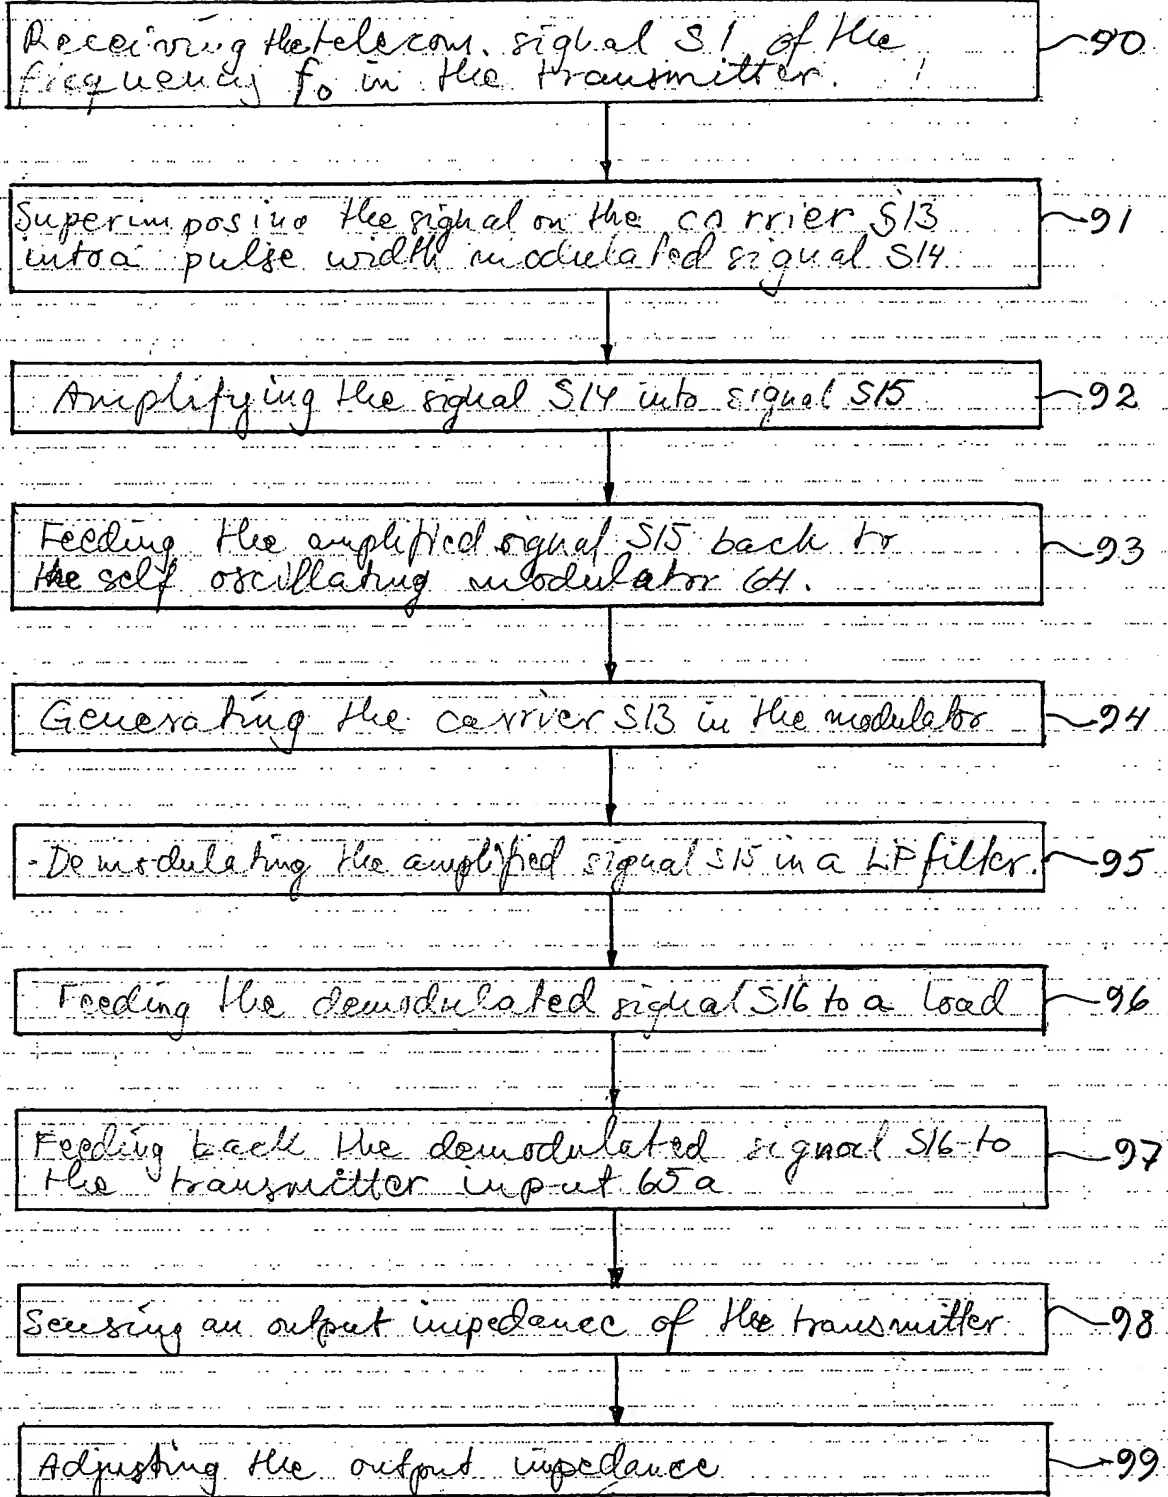 Receiving the telecom. signal S1 of the
frequency f₀ in the transmitter.
90
Superimposing the signal on the carrier S13
into a pulse width modulated signal S14
91
Amplifying the signal S14 into signal S15
92
Feeding the amplified signal S15 back to
the self oscillating modulator 64.
93
Generating the carrier S13 in the modulator
94
Demodulating the amplified signal S15 in a LP filter.
95
Feeding the demodulated signal S16 to a load
96
Feeding back the demodulated signal S16 to
the transmitter input 65a
97
Sensing an output impedance of the transmitter
98
Adjusting the output impedance
99